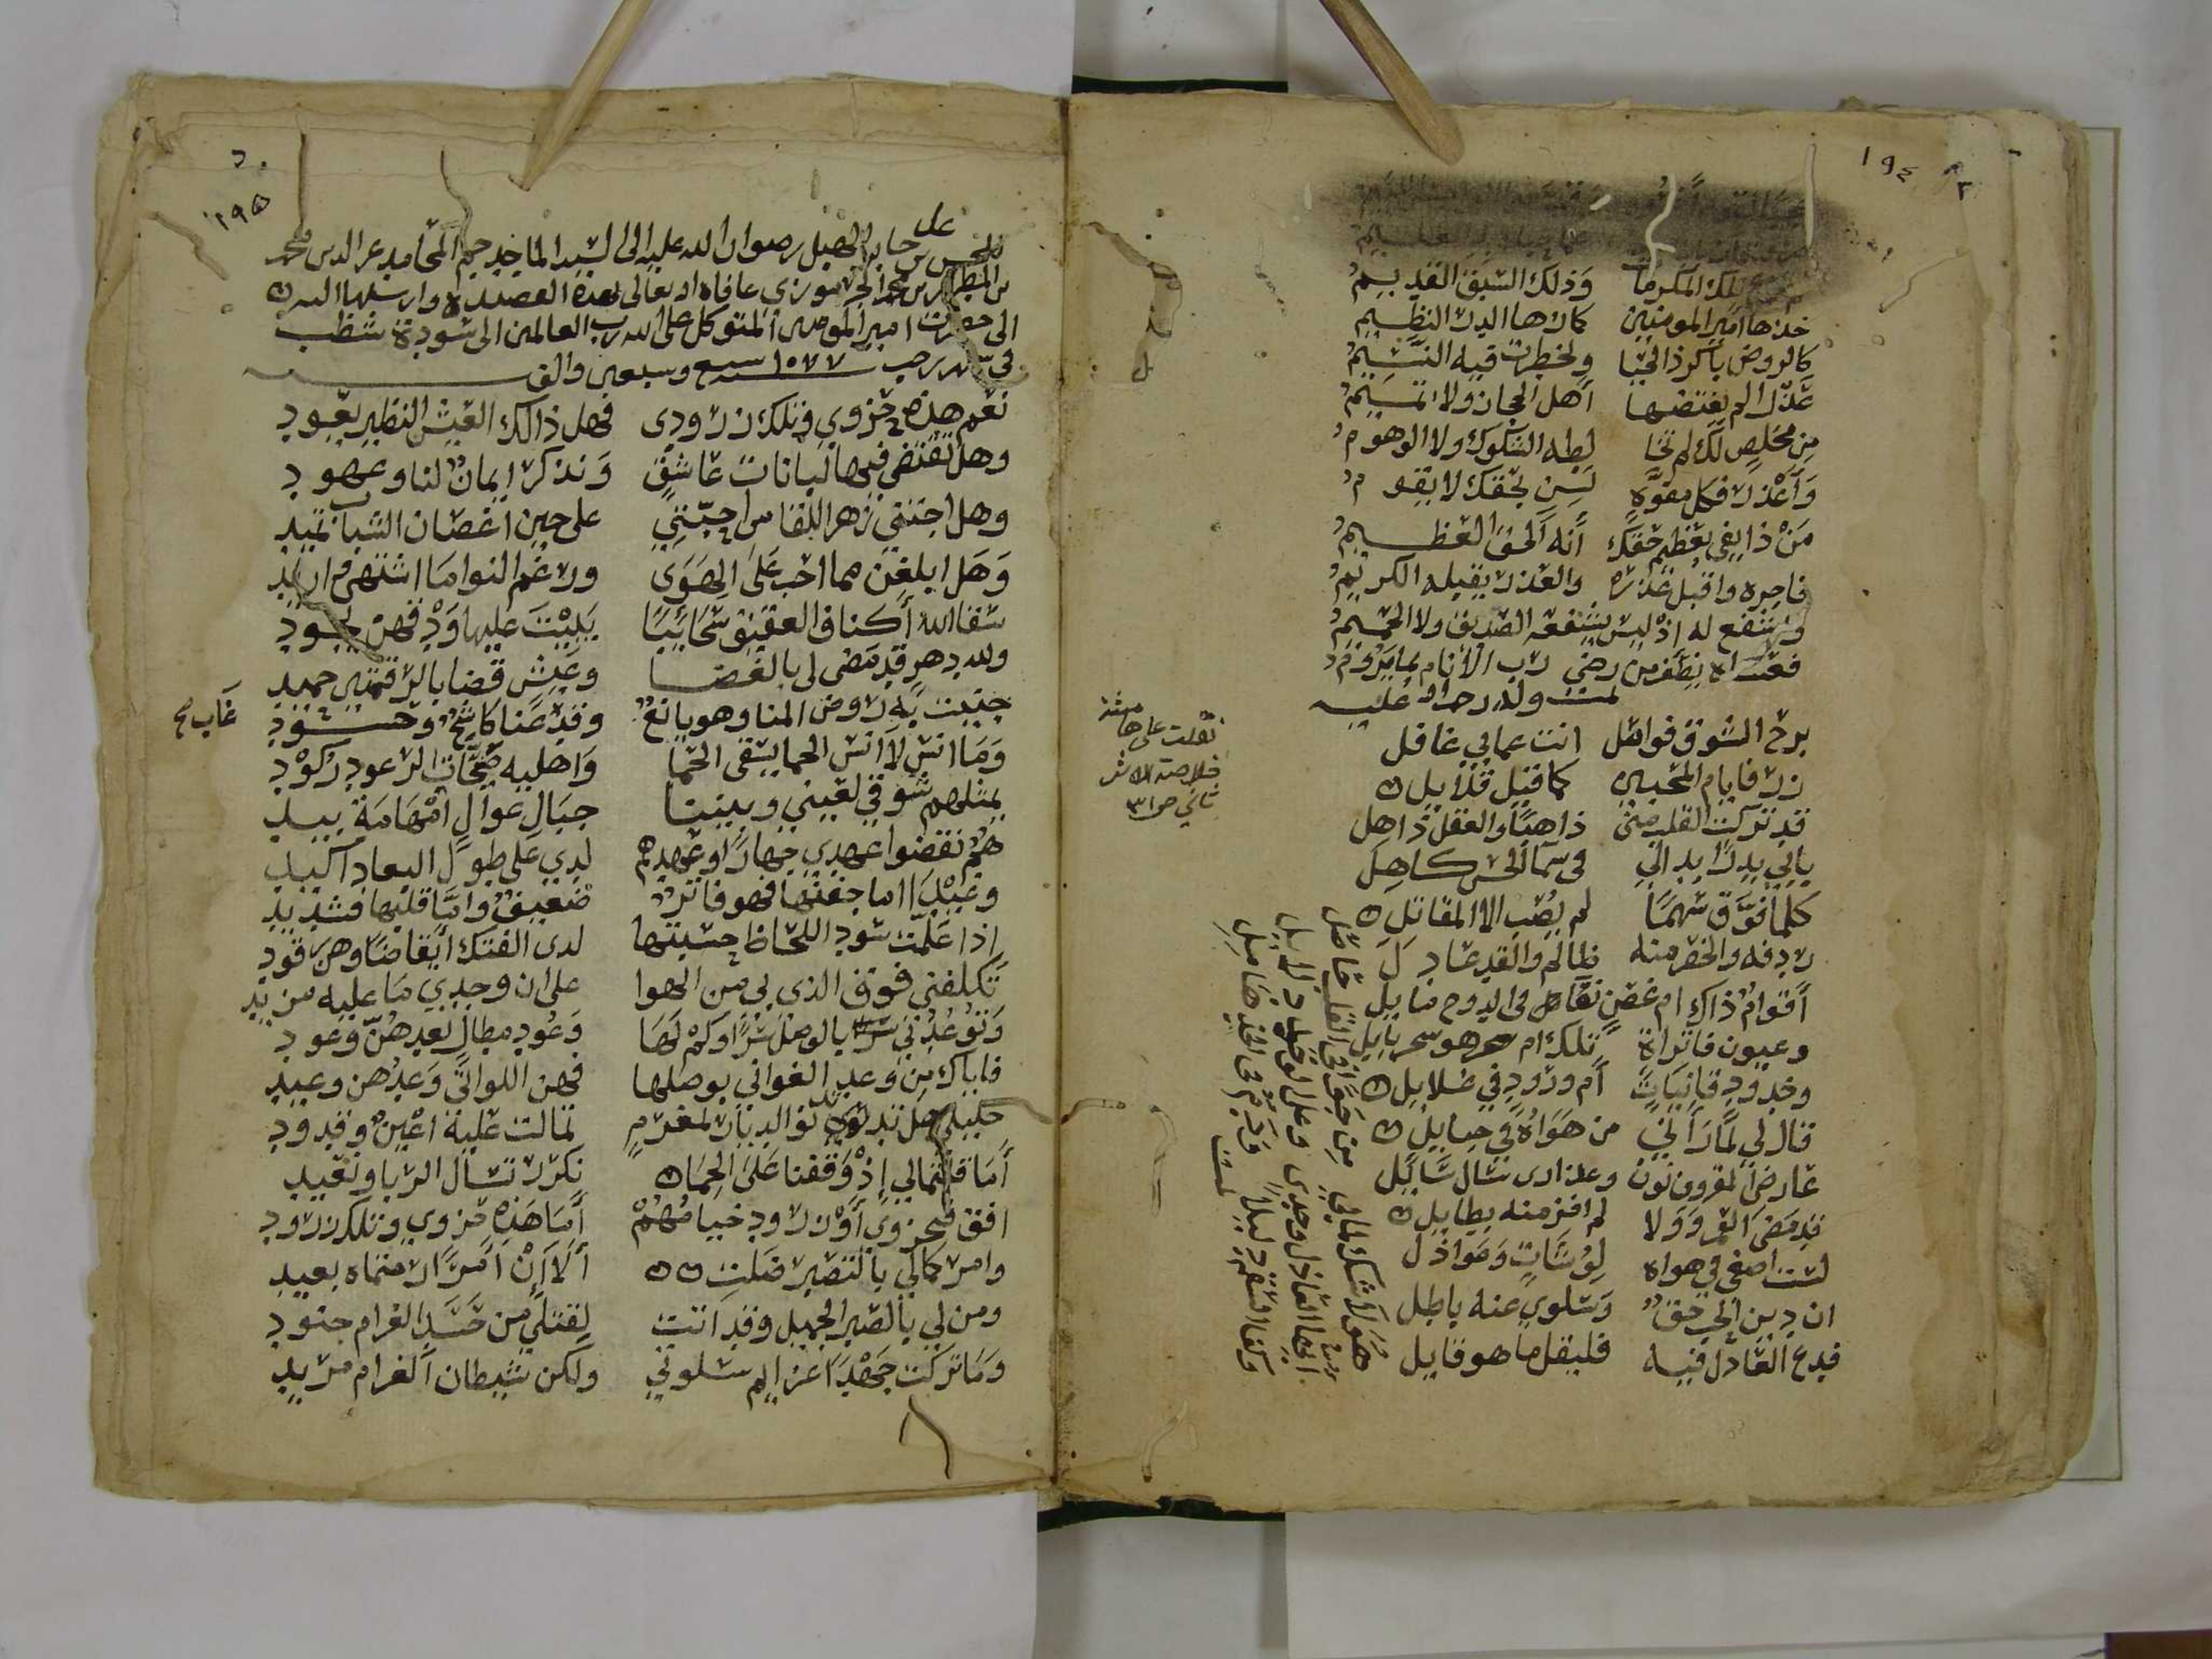 ١٩٤
تلك المكرما وذلك الشيق القديم
خذها امير المومنين كانها الدر النظيم
كالروض باكره الحيا ولخطرت فيه النسيم
عذرا لم يفتضها اهل الحجاز ولا تميم
من مخلص لك لم تخا لطه الشكوك ولا الوهوم
واعذر فكل مفوه لسن بحقك لا يقوم
من ذا يفي بعظيم حقك انه الحق العظيم
فاجره واقبل عذره والعذر يقبله الكريم
واشفع له اذ ليس يشفعه الصديق ولا الحميم
فعساه يظفر من رضى رب الانام بما يروم
تمت وله رحمه الله عليه
برح الشوق فواصل انت عما بي غافل
زر فايام المحبين كما قيل قلايل
قد تركت القلب مني ذاهبا والعقل ذاهل
يابي بدرا بدا لي في سما الحسن كاهل
كلما فوق سهما لم يصب الا المقاتل
ردفه والخصر منه ظالم والقد عادل
اقوام ذاك ام غصن نقا في الدوح مايل
وعيون فاتراة تلك ام هو سحر بابل
وخدود قانيات ام ورود في غلايل
قال لي لما راني من هواه في حبايل
عارض المقرون نون وعذارى سال سايل
قد مضى العمر ولا لم افز منه بطايل
لست اصغي في هواه لوشات وعواذل
ان دين الحب حق وسلوي عنه باطل
فدع العاذل فيه فليقل ما هو قايل
هو لا شك لما بي من جوى في القلب فاصل
ايها العاذل وجدي وعلى لوعتي دلايل
وكفا السقم دليلا ودم في الخد هامل
تمت
نقلت على هامشه
خلاصة الاثر
ثاني ص ٣١
١٩٥
للحسن بن علي جابر الهبل رضوان الله عليه الى السيد الماجد جم المحامد عز الدين محمد
بن المطهر بن محمد الجرموزي عافاه الله تعالى بهذه القصيدة وارسلها اليه
الى حضرت امير المومنين المتوكل على الله رب العالمين الى سودة شظب
في شهر رجب ١٠٧٧ سبع وسبعين والف
نعم هذه حزوى وتلك زرود فهل ذالك العيش النظير يعود
وهل تقتضى فيها لبانات عاشق وتذكر ايمان لنا وعهود
وهل اجتني زهر اللقا من احبتي على حين اغصان الشباب تميد
وهل ابلغن مما احب على الهوى ورغم النوا ما اشتهي واريد
سقا الله اكناف العقيق سحائبا يبيت عليها ودقهن يجود
ولله دهر قد مضى لي بالغضا وعيش قضا بالرقمتين حميد
جنيت به روض المنا وهو يانع وقد عنا كاشح وحسود
غاب صح
وما انس لا انس الحما يسقى الحما واهليه صحات الرعود ركود
يمثلهم شوقي لعيني وبيننا جبال عوال امتهامة بيد
هم نقضوا عهدي جهارا وعهدهم لدي على طول البعاد اكيد
وعبل اما جفنها فهو فاتر ضعيف واما قلبها فشديد
اذا علمت سود اللحاظ حسبتها لدى الفتك ايقاضا وهن رقود
تكلفني فوق الذي بي من الهوا على ان وجدي ما عليه مزيد
وتوعدني بالوصل سرا وكم لها وعود مطال بعدهن وعود
فاياك من وعد الغواني بوصلها فهن اللواتي وعدهن وعيد
خليلي هل تدنو الديار لمغرم تمالت عليه اعين وقدود
اما قلتما لي اذ وقفنا على الحما نكرر تسال الربا ونعيد
افق فبحزوى او زرود خيامهم اما هذه حزوي وتلك زرود
وامركما لي بالتصبر ضلت الا ان امرا رمتماه بعيد
ومن لي بالصبر الجميل وقد اتت لقتلي من حسد الغرام جنود
وما تركت جهدا عزايم سلوتي ولكن شيطان الغرام مريد